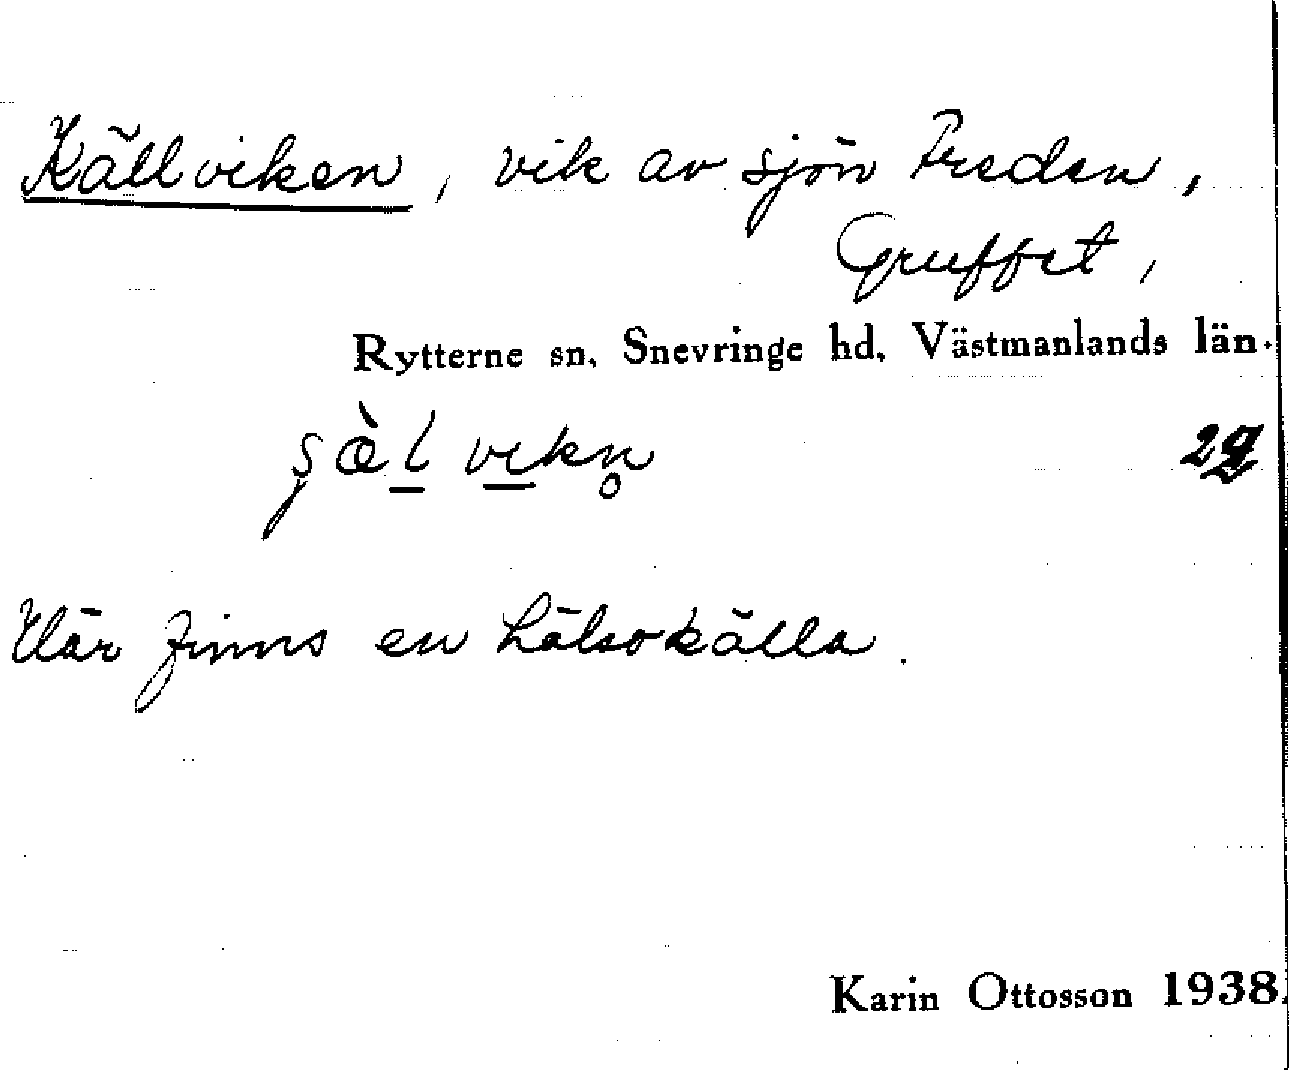 Källviken, vik av sjön Freden,
Gruffet,
Rytterne sn. Snevringe hd. Västmanlands län.
22
Här finns en hälsokälla.
Karin Ottosson 1938.